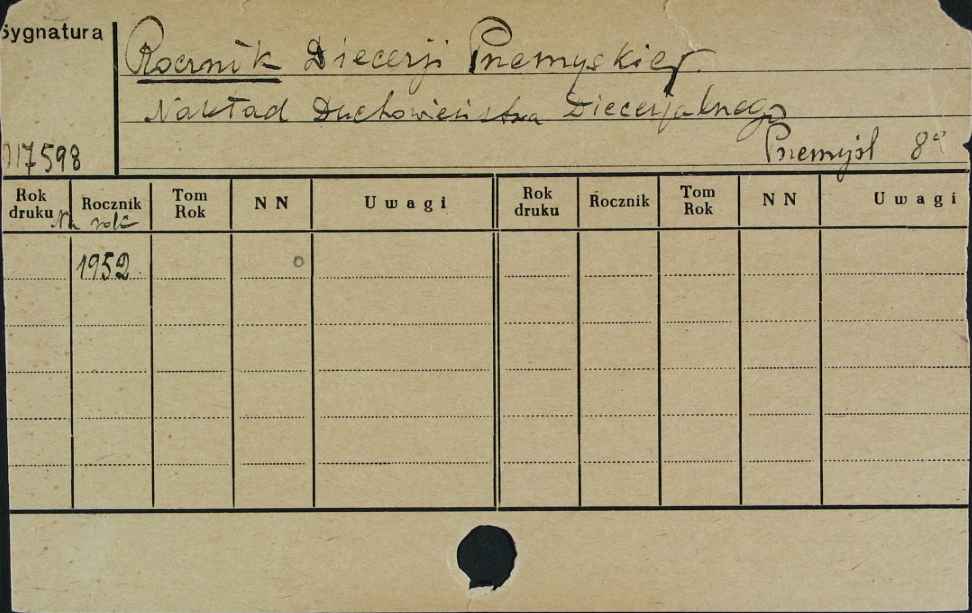 Sygnatura
Rocznik Diecezji Przemyskiej.
Nakład Duchowieństwa Diecezjalnego
Przemyśl 8°
117598
Rok druku Rocznik Tom Rok N N Uwagi Rok druku Rocznik Tom Rok N N Uwagi
Na rok
1952